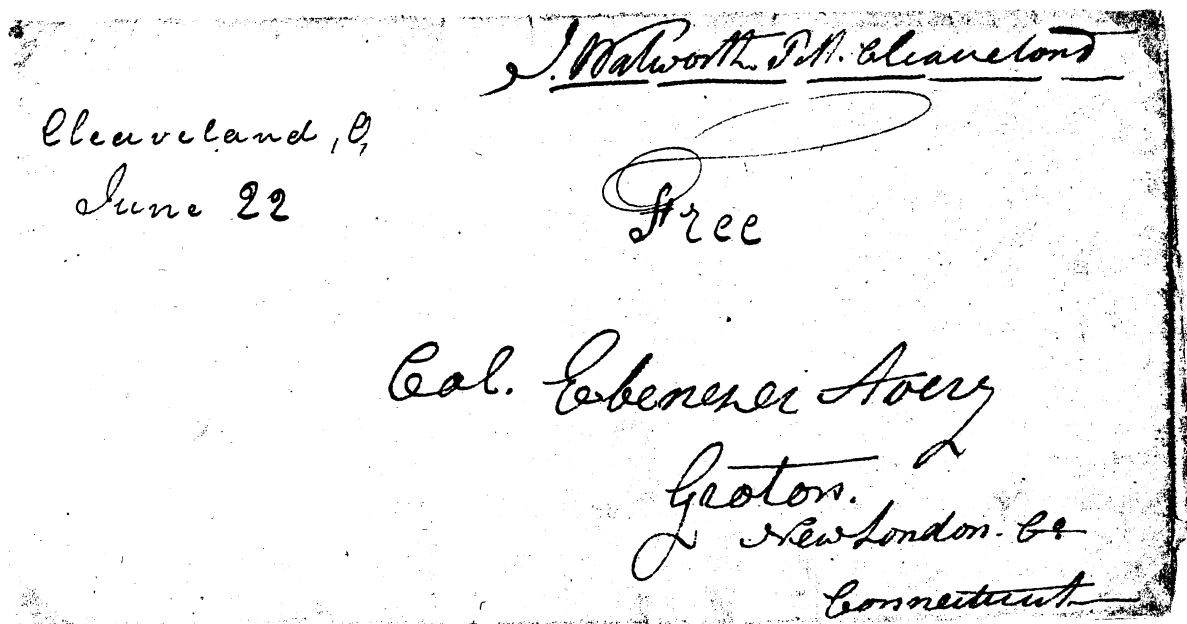 J. Walworth P.M. Cleaveland
Cleaveland, O,
June 22
Free
Col. Ebenezer Avery
Groton.
New London. Co
Connecticut